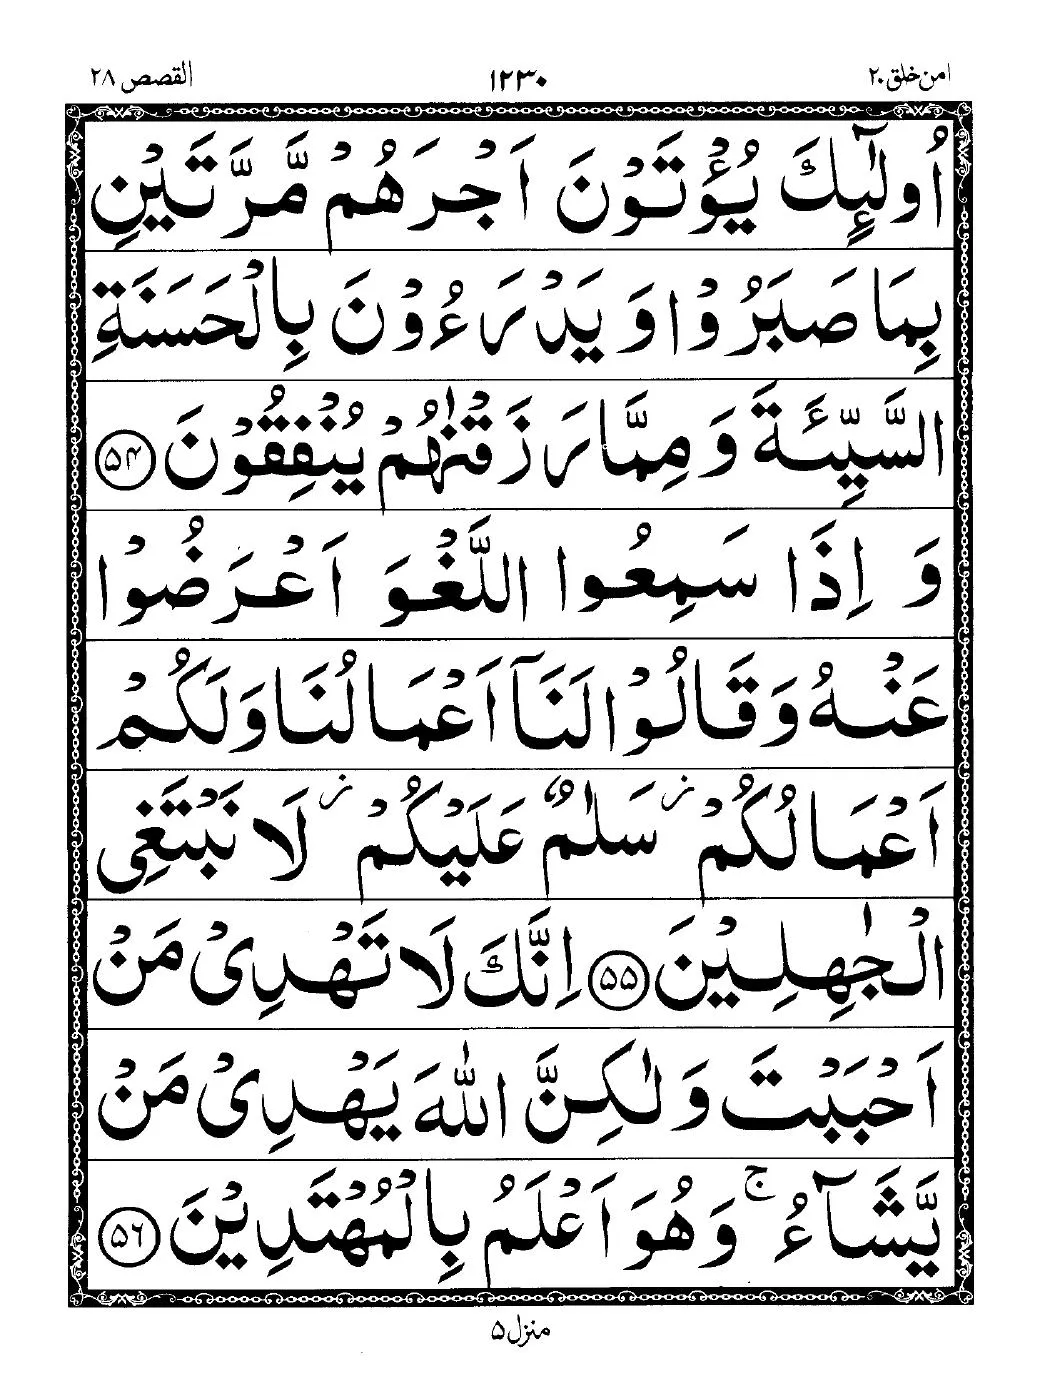 امن خلق ۲۰ ۱۲۳۰ القصص ۲۸
اُولٰٓئِكَ يُؤْتَوْنَ اَجْرَهُمْ مَّرَّتَيْنِ
بِمَا صَبَرُوْا وَ يَدْرَءُوْنَ بِالْحَسَنَةِ
السَّيِّئَةَ وَ مِمَّا رَزَقْنٰهُمْ يُنْفِقُوْنَ ۵۴
وَ اِذَا سَمِعُوا اللَّغْوَ اَعْرَضُوْا
عَنْهُ وَ قَالُوْا لَنَاۤ اَعْمَالُنَا وَلَكُمْ
اَعْمَالُكُمْ ز سَلٰمٌ عَلَيْكُمْ ز لَا نَبْتَغِي
الْجٰهِلِيْنَ ۵۵ اِنَّكَ لَا تَهْدِيْ مَنْ
اَحْبَبْتَ وَلٰكِنَّ اللّٰهَ يَهْدِيْ مَنْ
يَّشَآءُ ۚ وَهُوَ اَعْلَمُ بِالْمُهْتَدِيْنَ ۵۶
منزل ۵